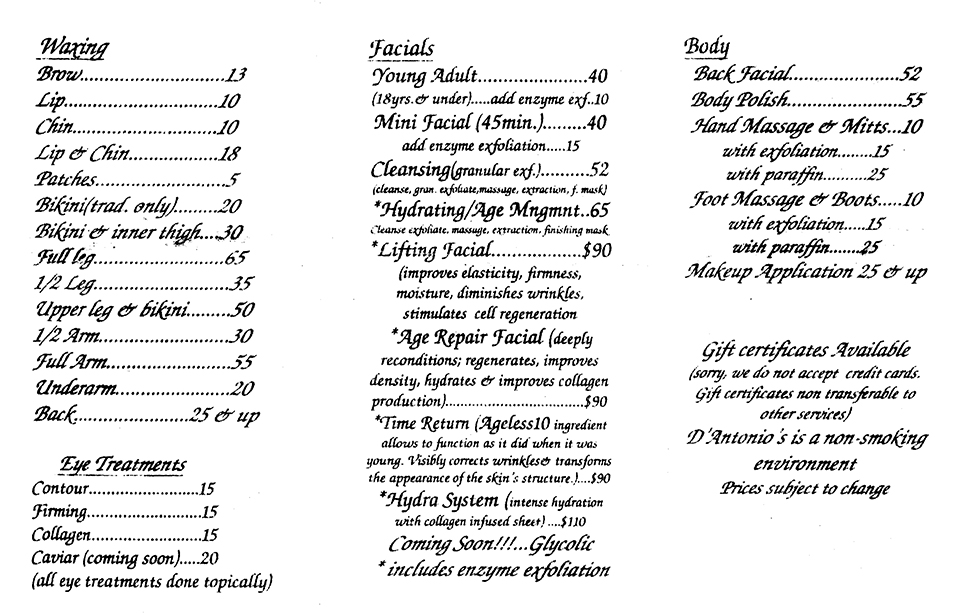 Waxing
Brow............................13
Lip..............................10
Chin............................10
Lip & Chin.................18
Patches..........................5
Bikini(trad. only)........20
Bikini & inner thigh....30
Full leg.........................65
1/2 Leg..........................35
Upper leg & bikini.........50
1/2 Arm.........................30
Full Arm......................55
Underarm......................20
Back......................25 & up
Eye Treatments
Contour..........................15
Firming..........................15
Collagen.........................15
Caviar (coming soon).....20
(all eye treatments done topically)
Facials
Young Adult.....................40
(18yrs.& under).....add enzyme exf..10
Mini Facial (45min.).........40
add enzyme exfoliation.....15
Cleansing(granular exf.)..........52
(cleanse, gran. exfoliate,massage, extraction, f. mask)
*Hydrating/Age Mngmnt..65
Cleanse exfoliate, massage, extraction, finishing mask
*Lifting Facial.................$90
(improves elasticity, firmness,
moisture, diminishes wrinkles,
stimulates cell regeneration
*Age Repair Facial (deeply
reconditions; regenerates, improves
density, hydrates & improves collagen
production)..................................$90
*Time Return (Ageless10 ingredient
allows to function as it did when it was
young. Visibly corrects wrinkles& transforms
the appearance of the skin's structure.)....$90
*Hydra System (intense hydration
with collagen infused sheet) ....$110
Coming Soon!!!...Glycolic
* includes enzyme exfoliation
Body
Back Facial.....................52
Body Polish.....................55
Hand Massage & Mitts...10
with exfoliation........15
with paraffin..........25
Foot Massage & Boots.....10
with exfoliation.....15
with paraffin........25
Makeup Application 25 & up
Gift certificates Available
(sorry, we do not accept credit cards.
Gift certificates non transferable to
other services)
D'Antonio's is a non-smoking
environment
Prices subject to change